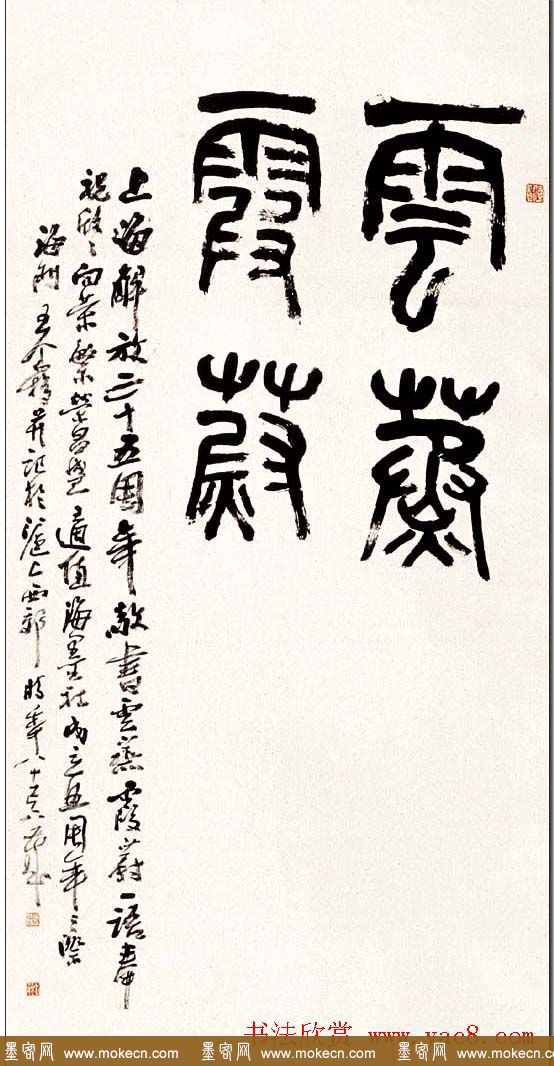 雲蒸
霞蔚
上海解放三十五周年敬書雲蒸霞蔚一語奉
祝欣〻向榮繁榮昌盛適值海墨社成立五周年之際
海門王个簃并記於滬上西郊時年八十
书法欣赏 www.yac8.com
墨客网 www.mokecn.com 墨客网 www.mokecn.com 墨客网 www.mokecn.com